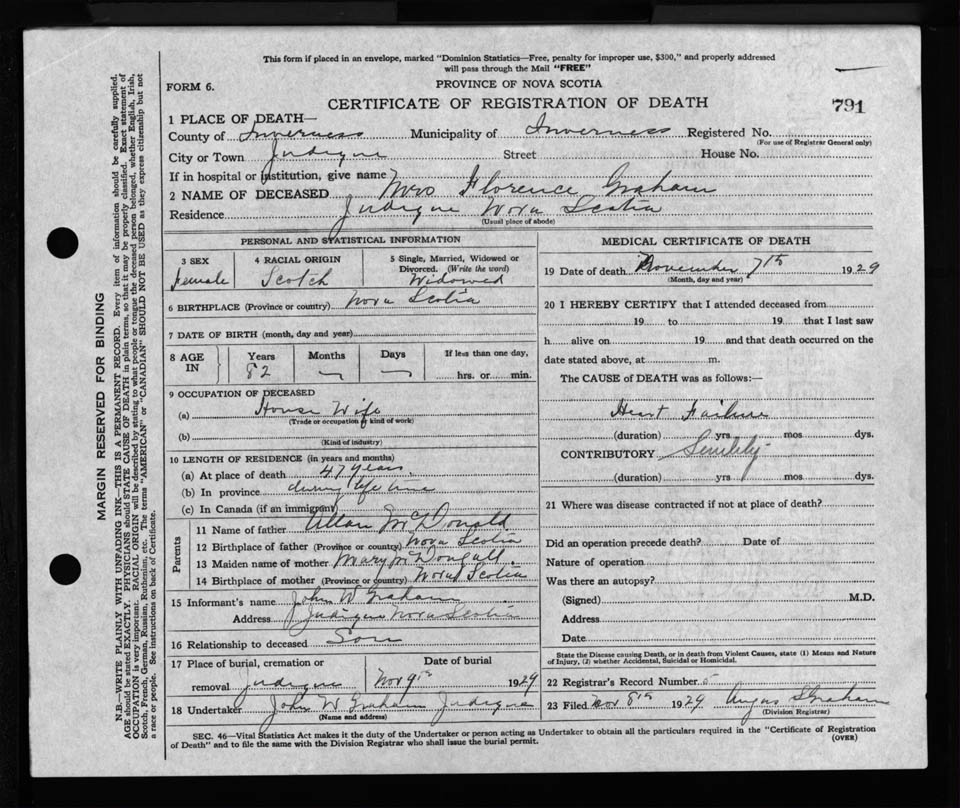 This form if placed in an envelope, marked "Dominion Statistics—Free, penalty for improper use, $300," and properly addressed
will pass through the Mail "FREE"
FORM 6.
PROVINCE OF NOVA SCOTIA
CERTIFICATE OF REGISTRATION OF DEATH
791
1 PLACE OF DEATH—
County of Inverness Municipality of Inverness Registered No.
(For use of Registrar General only)
City or Town Judique Street House No.
If in hospital or institution, give name
2 NAME OF DECEASED Mrs Florence Graham
Residence Judique Nova Scotia
(Usual place of abode)
PERSONAL AND STATISTICAL INFORMATION
3 SEX
Female
4 RACIAL ORIGIN
Scotch
5 Single, Married, Widowed or
Divorced. (Write the word)
Widowed
6 BIRTHPLACE (Province or country) Nova Scotia
7 DATE OF BIRTH (month, day and year)
8 AGE
IN
Years
82
Months
Days
If less than one day,
hrs. or min.
9 OCCUPATION OF DECEASED
(a) House Wife
(Trade or occupation or kind of work)
(b)
(Kind of industry)
10 LENGTH OF RESIDENCE (in years and months)
(a) At place of death 47 years
(b) In province during life time
(c) In Canada (if an immigrant)
Parents
11 Name of father Allan McDonald
12 Birthplace of father (Province or country) Nova Scotia
13 Maiden name of mother Mary McDougall
14 Birthplace of mother (Province or country) Nova Scotia
15 Informant's name John W Graham
Address Judique Nova Scotia
16 Relationship to deceased Son
17 Place of burial, cremation or
removal Judique
Date of burial
Nov 9th 1929
18 Undertaker John W Graham Judique
(Name and address)
MEDICAL CERTIFICATE OF DEATH
19 Date of death November 7th 1929
(Month, day and year)
20 I HEREBY CERTIFY that I attended deceased from
19 to 19 that I last saw
h alive on 19 and that death occurred on the
date stated above, at m.
The CAUSE of DEATH was as follows:—
Heart Failure
(duration) yrs mos dys.
CONTRIBUTORY Senility
(duration) yrs mos dys.
21 Where was disease contracted if not at place of death?
Did an operation precede death? Date of
Nature of operation
Was there an autopsy?
(Signed) M.D.
Address
Date
State the Disease causing Death, or in death from Violent Causes, state (1) Means and Nature
of Injury, (2) whether Accidental, Suicidal or Homicidal.
22 Registrar's Record Number 5
23 Filed Nov 8th 1929 Angus S Graham
(Division Registrar)
SEC. 46—Vital Statistics Act makes it the duty of the Undertaker or person acting as Undertaker to obtain all the particulars required in the "Certificate of Registration
of Death" and to file the same with the Division Registrar who shall issue the burial permit.
(OVER)
MARGIN RESERVED FOR BINDING
N.B.—WRITE PLAINLY WITH UNFADING INK—THIS IS A PERMANENT RECORD. Every item of information should be carefully supplied.
AGE should be stated EXACTLY. PHYSICIANS should STATE CAUSE OF DEATH in plain terms, so that it may be properly classified. Exact statement of
OCCUPATION is very important. RACIAL ORIGIN will be described by stating to what people or tongue the deceased person belonged, whether English, Irish,
Scotch, French, German, Russian, Ruthenian, etc. The terms "AMERICAN" or "CANADIAN" SHOULD NOT BE USED as they express citizenship but not
a race or people. See instructions on back of Certificate.